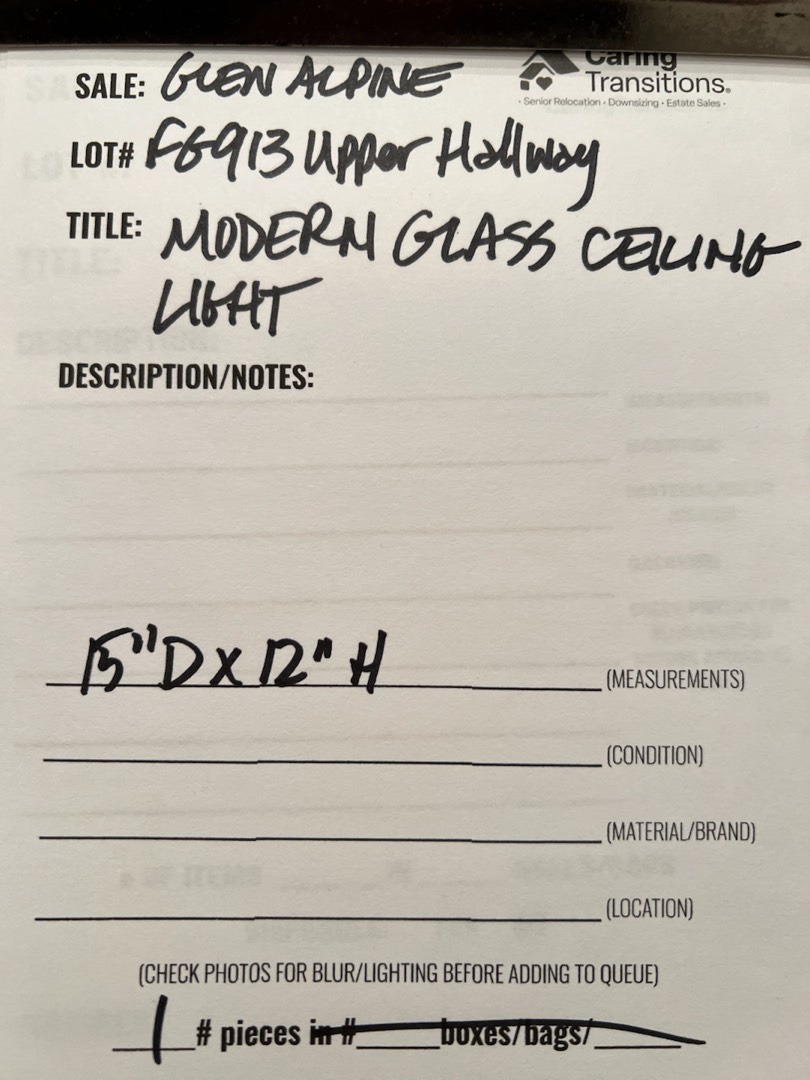 Caring
Transitions.
· Senior Relocation · Downsizing · Estate Sales ·
SALE: GLEN ALPINE
LOT# FG913 Upper Hallway
TITLE: MODERN GLASS CEILING
LIGHT
DESCRIPTION/NOTES:
15" D x 12" H (MEASUREMENTS)
(CONDITION)
(MATERIAL/BRAND)
(LOCATION)
(CHECK PHOTOS FOR BLUR/LIGHTING BEFORE ADDING TO QUEUE)
1 # pieces in # boxes/bags/